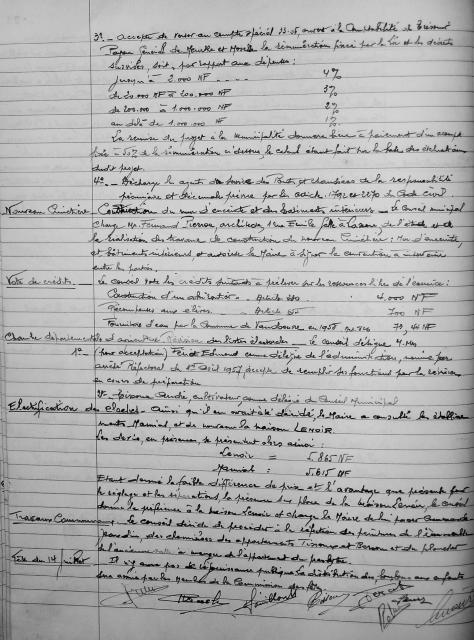 3° - accepte de verser au compte spécial 13-05 ouvert à la Comptabilité de Trésorier
Payeur Général de Meurthe et Moselle la rémunération fixée par la loi et les décrets
suivants, soit, par rapport aux dépenses :
jusqu'à 2.000 NF .... 4%
de 20.000 NF à 200.000 NF 3%
de 200.000 à 1.000.000 NF 2%
au delà de 1.000.000 NF 1%
La remise du projet à la municipalité donnera lieu à paiement d'un acompte
fixé à 50% de la rémunération ci-dessus, le calcul étant fait sur la base des évaluations
dudit projet.
4° - Décharge les agents du Service des Ponts et chaussées de la responsabilité
pécuniaire et décennale prévue par les articles 1792 et 2270 du Code Civil.
Nouveau Cimetière - Construction du mur d'enceinte et des bâtiments intérieurs - Le Conseil municipal
charge Mr. Fernand architecte, rue Emile de l'étude et de
la réalisation des travaux de construction du nouveau Cimetière : Mur d'enceinte,
et bâtiments intérieurs et autorise le Maire à signer la convention à intervenir
entre les parties.
Vote de crédits - Le Conseil vote les crédits suivants à prélever sur les ressources libres de l'exercice :
Construction d'un article NF
Récompenses aux élèves - article 700 NF
Fourniture d'eau par la Commune de Vandoeuvre en 1958 79,40 NF
Chambre départementale d'agriculture Révision des listes électorales - Le Conseil délègue 2 M
1° - (sous acceptation) Edmond comme délégué de l'administration, nommé par
arrêté Préfectoral du 1er Avril 1957 accepte de remplir ses fonctions pour la révision
en cours de préparation
2° - André, cultivateur, comme délégué du Conseil Municipal
Electrification des cloches - Ainsi qu'il en avait été décidé, le Maire a consulté les établisse-
ments Mamias, et de nouveau la maison LENOIR.
Les devis, en présence, se présentent alors ainsi :
Lenoir = 5.865 NF
Mamias : 5.615 NF
Etant donné la faible différence de prix et l'avantage que présente pour
le réglage et les réparations, la présence sur place de la Maison Lenoir, le Conseil
donne la préférence à la maison Lenoir et charge le Maire de lui passer Commande
Travaux Communaux - Le Conseil décide de procéder à la réfection des peintures de l'immeuble
des cheminées des appartements et et du plancher
de l'ancienne salle à manger de l'appartement du presbytère
Fête du 14 Juillet - Il n'y aura pas de réjouissance publique. La distribution des bonbons aux enfants
sera assurée par les membres de la Commission des fêtes